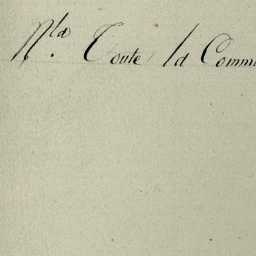 Nta. Toute la Comm